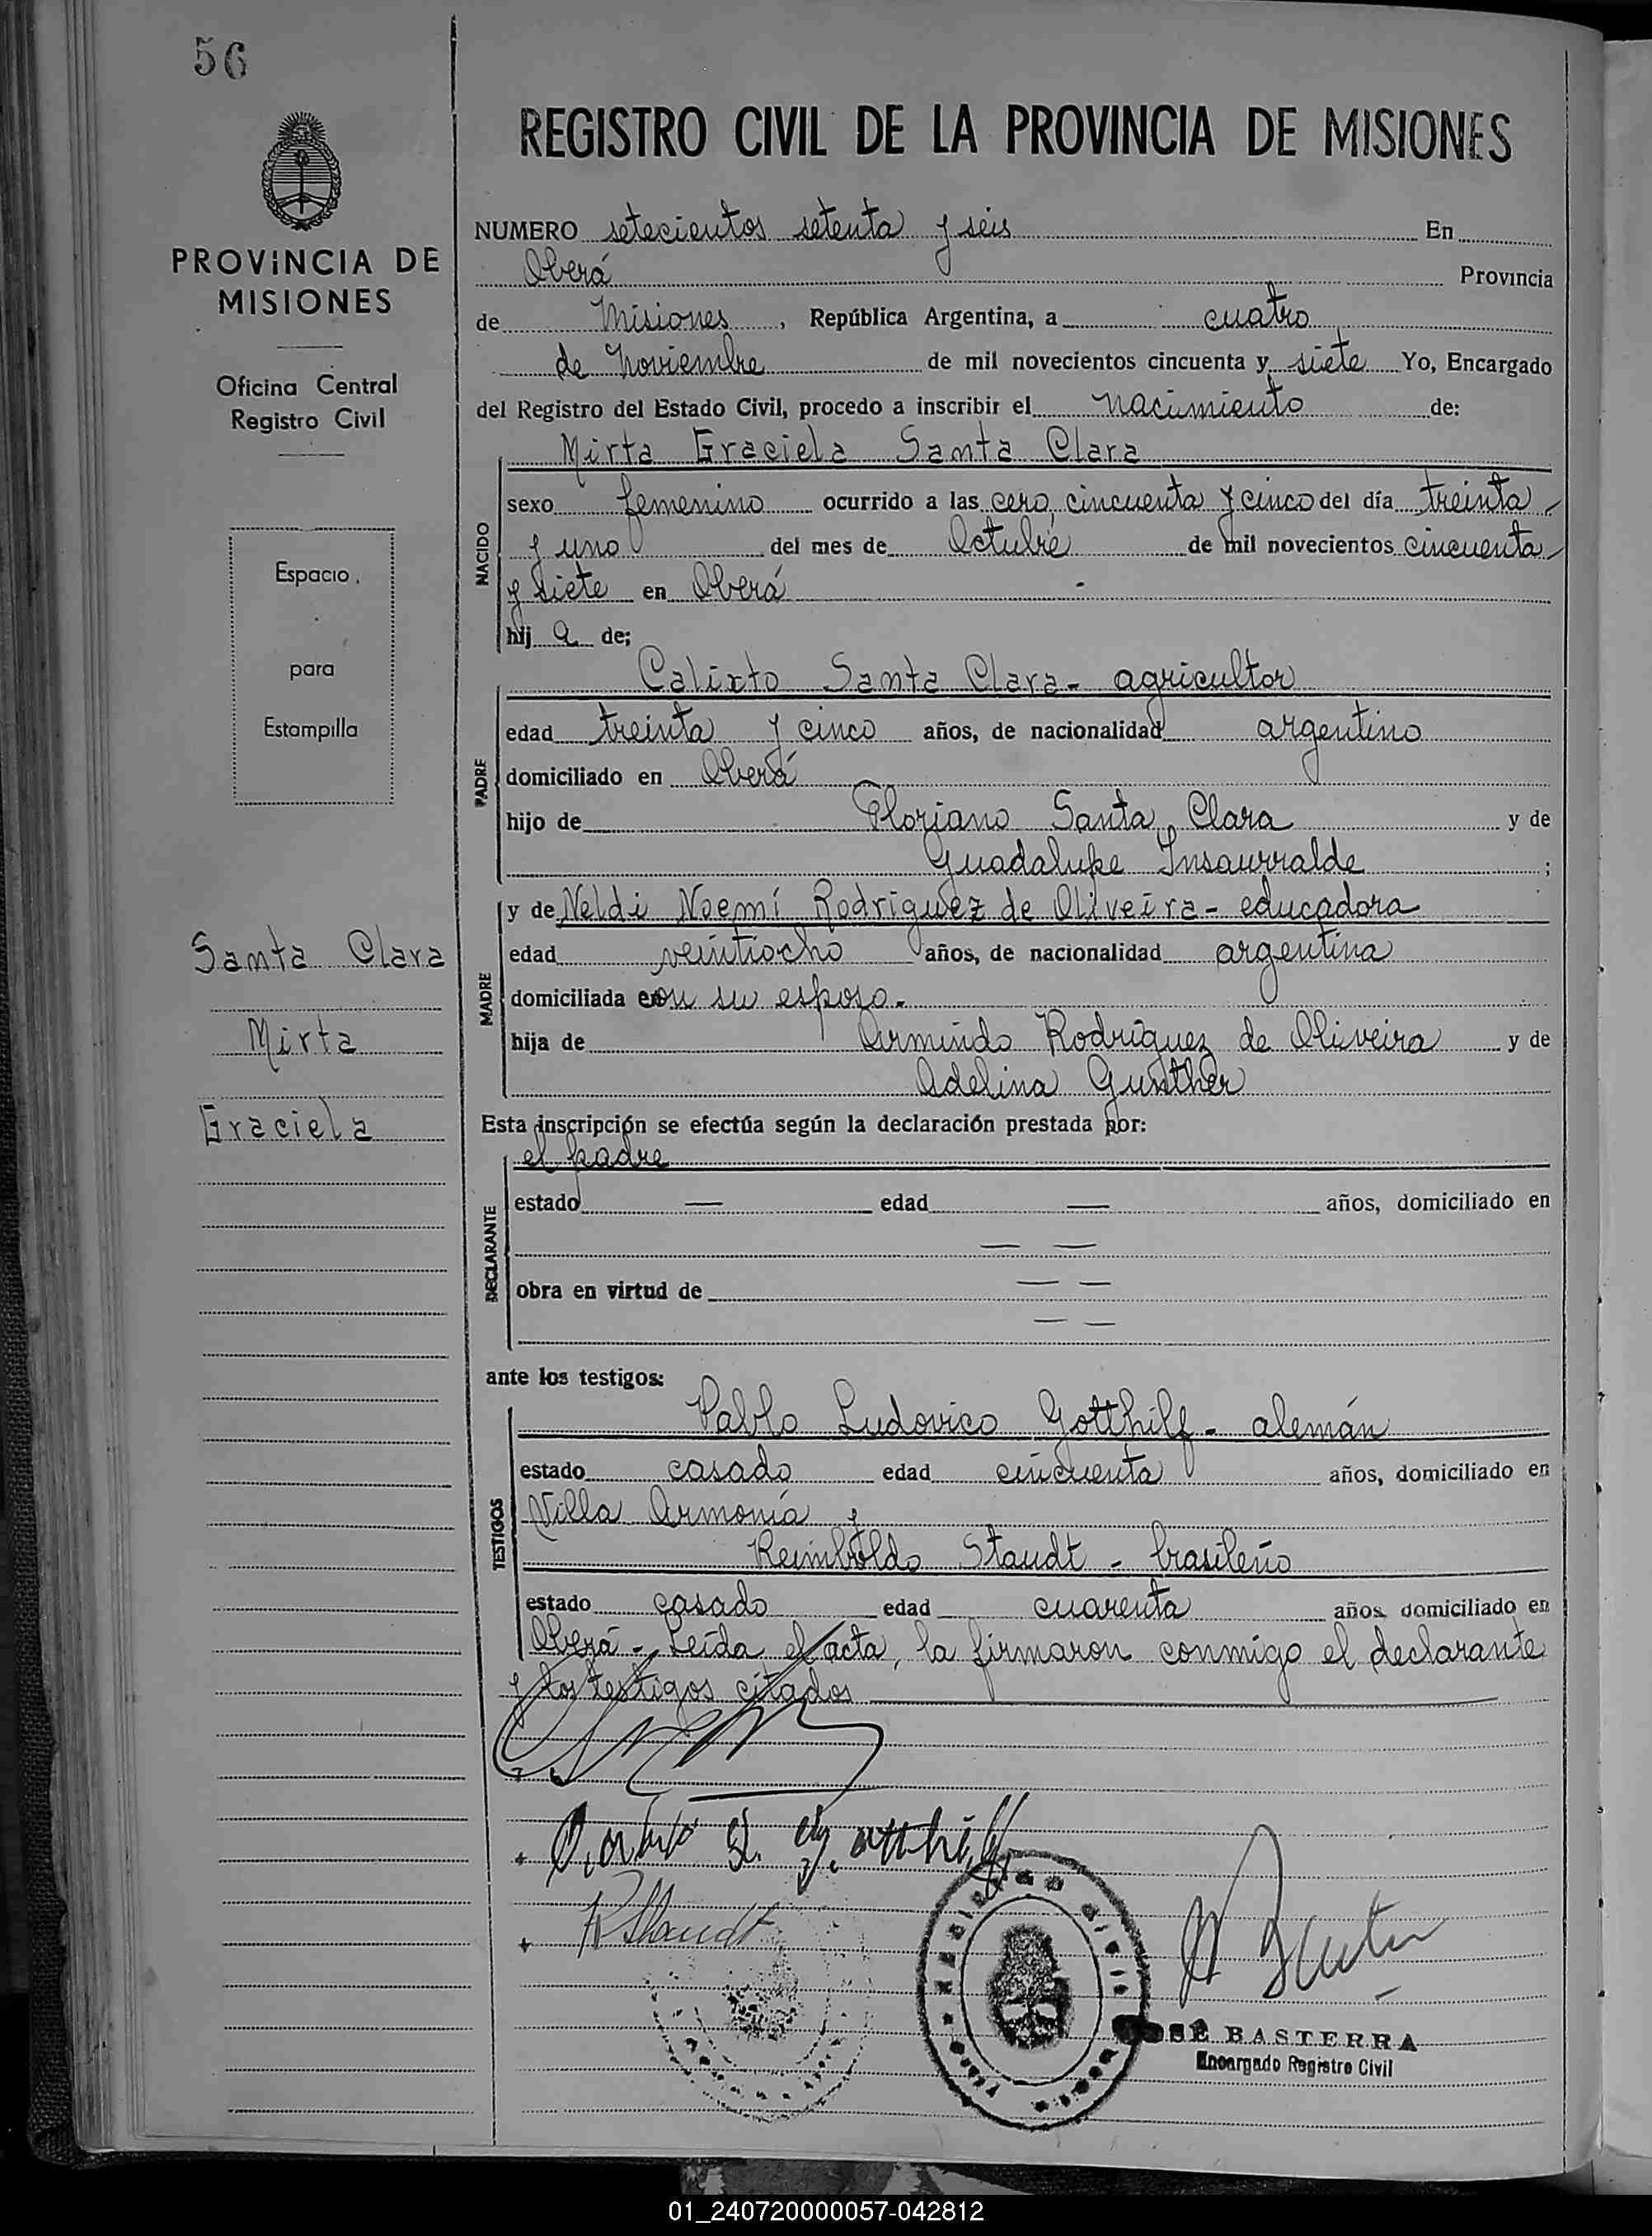 56
PROVINCIA DE
MISIONES
Oficina Central
Registro Civil
Espacio
para
Estampilla
Santa Clara
Mirta
Graciela
REGISTRO CIVIL DE LA PROVINCIA DE MISIONES
NUMERO setecientos setenta y seis En
Oberá Provincia
de Misiones, República Argentina, a cuatro
de Noviembre de mil novecientos cincuenta y siete Yo, Encargado
del Registro del Estado Civil, procedo a inscribir el nacimiento de:
Mirta Graciela Santa Clara
NACIDO
sexo femenino ocurrido a las cero, cincuenta y cinco del día treinta
y uno del mes de Octubre de mil novecientos cincuenta
y siete en Oberá
hij a de;
PADRE
Calixto Santa Clara - agricultor
edad treinta y cinco años, de nacionalidad argentino
domiciliado en Oberá
hijo de Floriano Santa Clara y de
Guadalupe Insaurralde ;
MADRE
y de Neldi Noemí Rodriguez de Oliveira - educadora
edad veintiocho años, de nacionalidad argentina
domiciliada con su esposo.
hija de Armindo Rodriguez de Oliveira y de
Adelina Gunther
Esta inscripción se efectúa según la declaración prestada por:
DECLARANTE
el padre
estado — edad — años, domiciliado en
— —
obra en virtud de — —
— —
ante los testigos:
TESTIGOS
Pablo Ludovico Gotthilf - alemán
estado casado edad cincuenta años, domiciliado en
Villa Armonía y
Reimboldo Staudt - brasileño
estado casado edad cuarenta años domiciliado en
Oberá - Leída el acta, la firmaron conmigo el declarante
y los testigos citados
Pablo L. Gotthilf
R Staudt
JOSÉ BASTERRA
Encargado Registro Civil
01_240720000057-042812